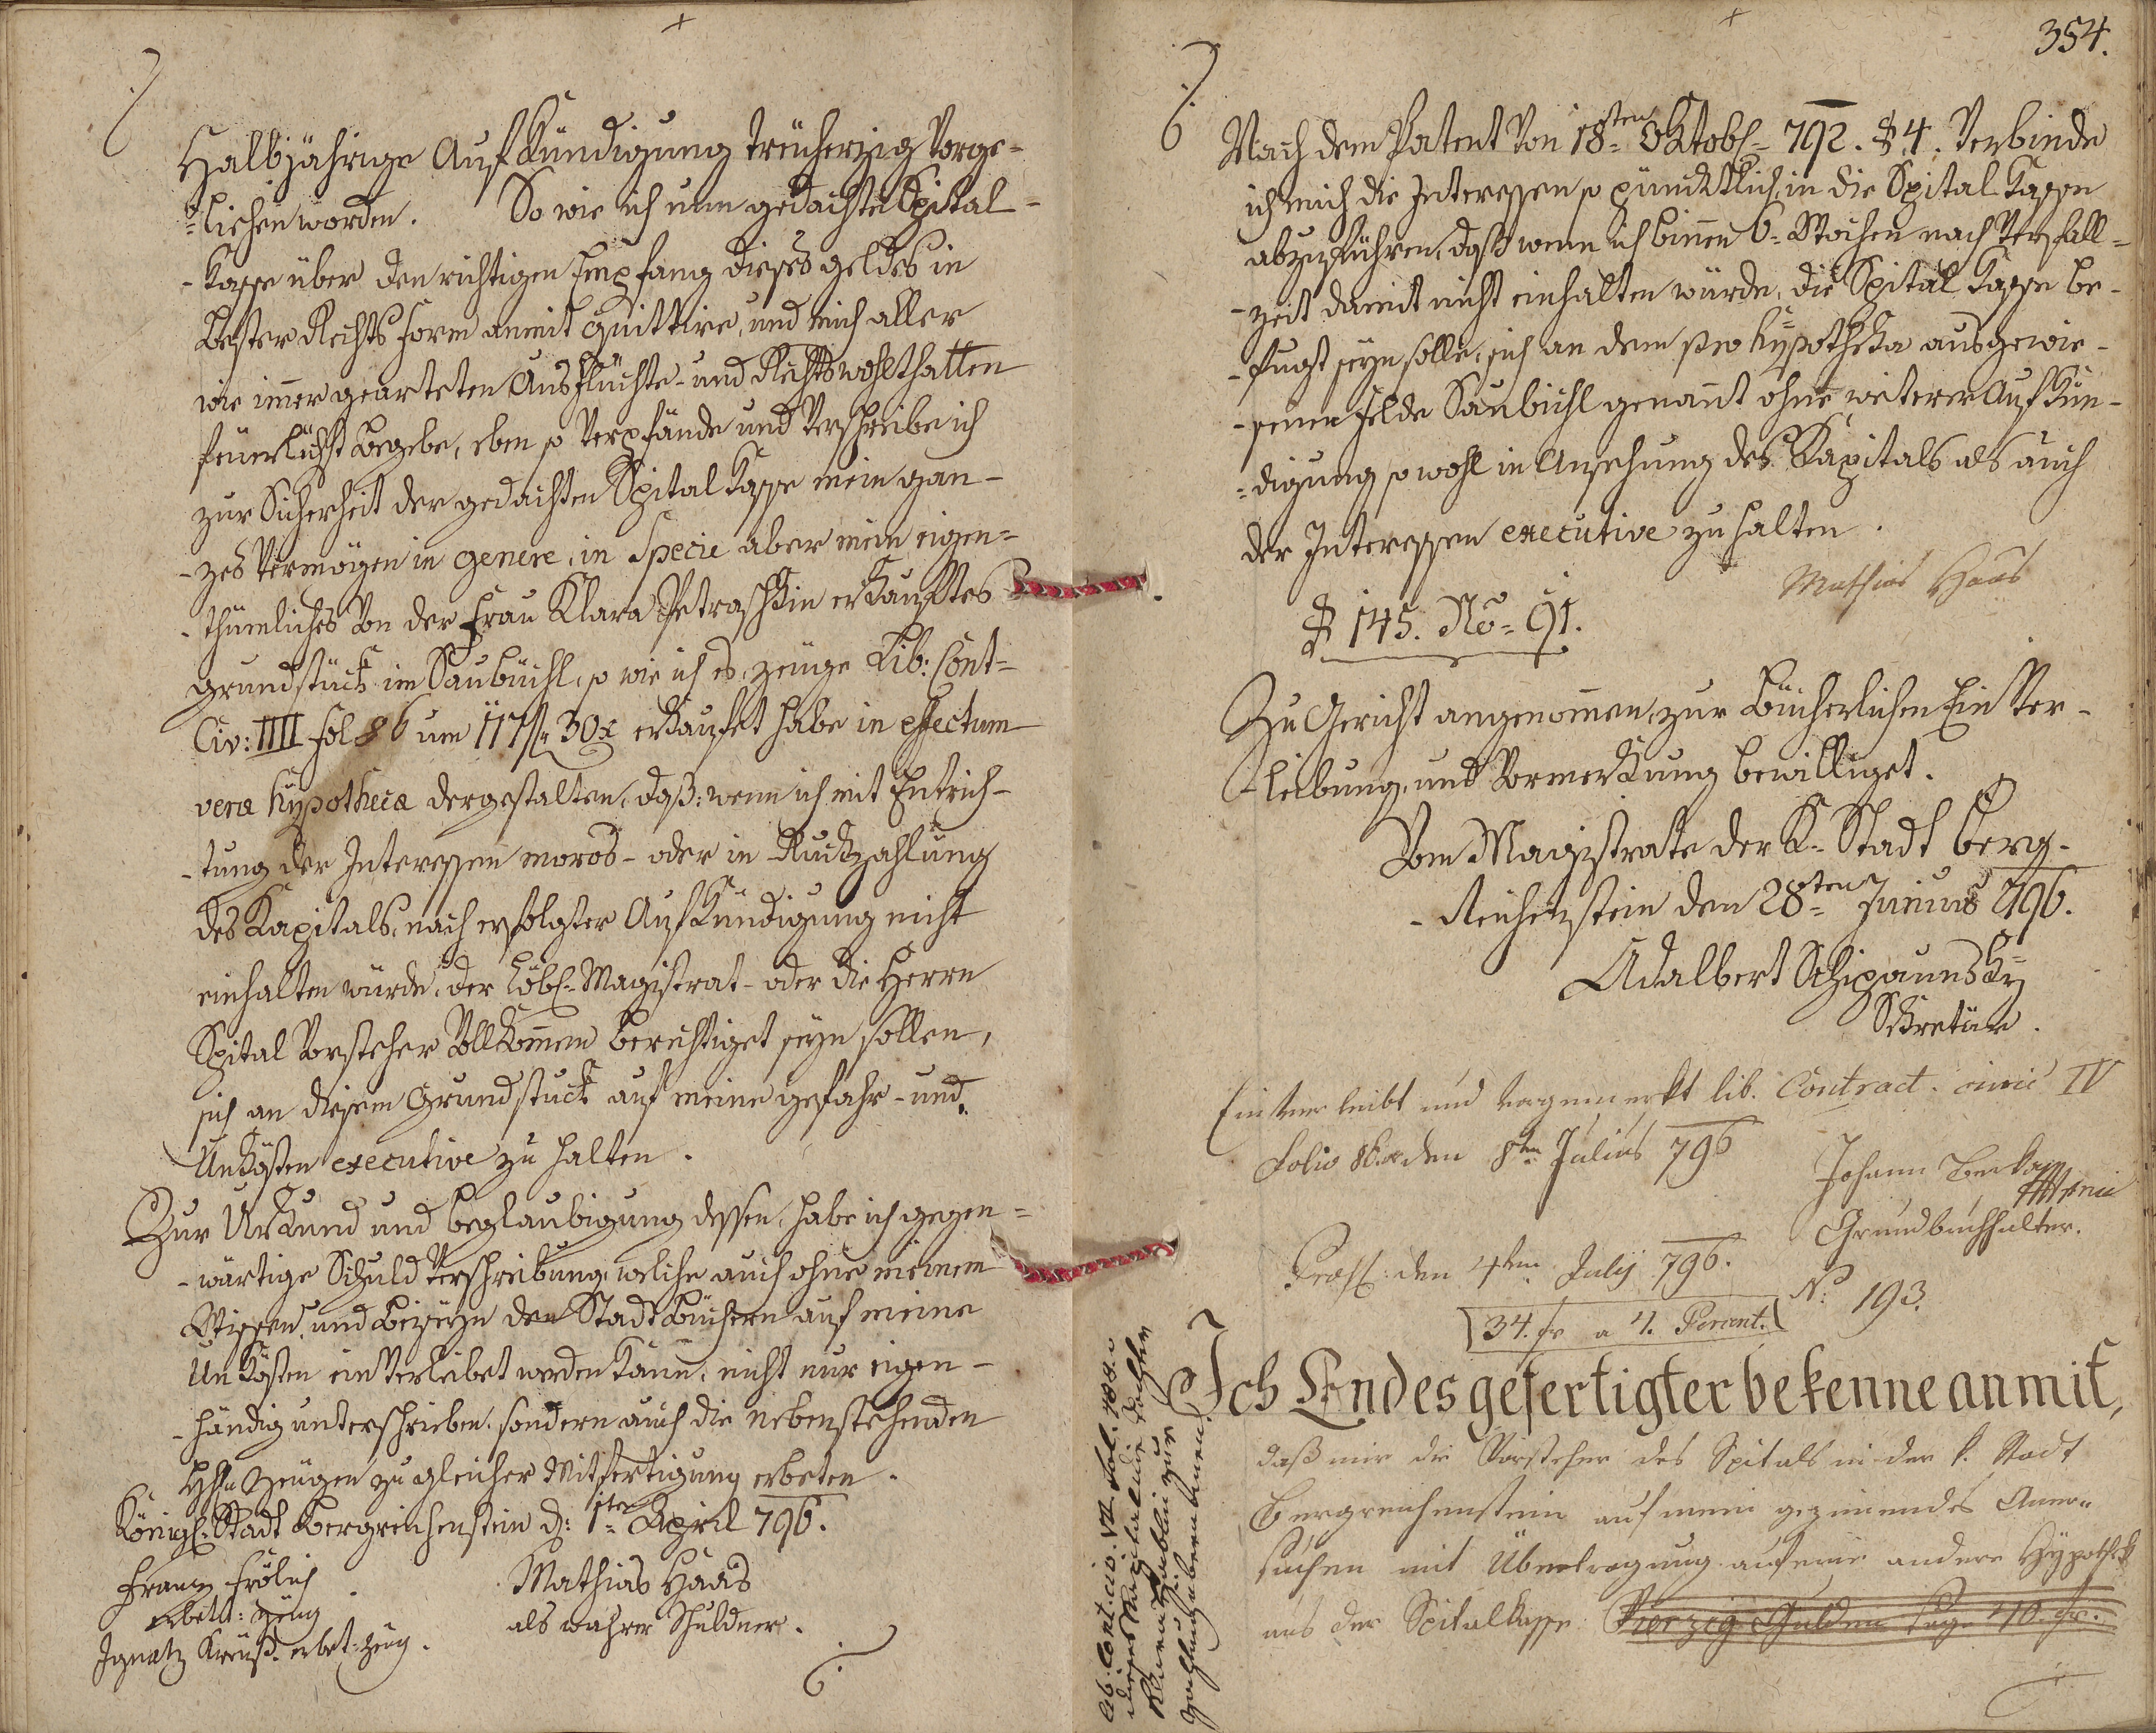 Halbjährige Aufkündigung treuherzig Vorge-
-liehen worden. So wie ich nun gedachte Spital-
-Kasse über den richtigen Empfang dieses geldes in
bester Rechts form anmit quittire, und mich aller
wie immer gearteten Ausflüchte- und Rechtswohlthatten
feuerlichst begebe, eben so Verpfände und Verschreibe ich
zur Sicherheit der gedachten Spital Kasse mein gan-
-zes Vermögen in genere, in Specie aber mein eigen-
-thümliches Von der Frau Klara Petraschkin erkauftes
grundstück im Saubüchl, so wie ich es, zeuge Lib: Cont-
Civ: IIII fol 86 um 117 f 30 x erkaufet habe in effectum
veræ hypothecæ dergestalten, daß: wenn ich mit Entrich-
-tung der Interessen moros- oder in Ruckzahlung
des Kapitals, nach erfolgter Aufkündigung nicht
einhalten würde, der Löbl: Magistrat- oder die Herrn
Spital Vorsteher Vollkommen berechtiget seyn sollen,
sich an diesem Grundstuck auf meine gefahr- und
Unkösten executive zu halten.
Zur Urkund und beglaubigung dessen, habe ich gegen-
-wärtige Schuld Verschreibung, welche auch ohne meinem
Wissen, und Beyseyn den Stadt Büchern auf meine
Unkösten ein Verleibet werden kann, nicht nur eigen-
-händig unterschrieben, sondern auch die nebenstehenden
Hh: Zeugen zu gleicher Mitfertigung erbeten.
Königl: Stadt Bergreichenstein d: 1ten April 796.
Franz Frölich
erbett: Zeug
Ignatz Kreuß. erbet: Zeug.
Mathias Haas
als wahrer Schuldner.
354.
Nach dem Patent Von 18ten Oktob: 792. § 4. Verbinde
ich mich die Interessen so pünktlich in die Spital Kassen
abzuführen, daß wenn ich binnen 6- Wochen nach Verfall-
-zeit damit nicht einhalten würde, die Spital Kasse be-
-fugt seyn solle, sich an dem pro hypotheka ausgewie-
-senen Felde Saubichl genannt ohne weiterer Aufkün-
-digung so wohl in Ansehung des Kapitals als auch
der Interessen executive zu halten.
Mathias Haas
§ 145. No= 91.
Zu Gericht angenommen, zur Bücherlichen Ein Ver-
-leibung, und Vormerkung bewilliget.
Vom Magistrate der K. Stadt Berg-
-Reichenstein den 28ten Junius 796.
Adalbert Schipaunsky
Skretär.
Einverleibt und vorgemerkt lib. Contract. civic IV
Folio 86. den 8ten Julius 796
Johann
Grundbuchhalter.
den 4ten July 796.
No. 193.
34. fr a 4. Percent.
Ich Endesgefertigter bekenne anmit,
daß mir die Vorsteher des Spitals in der k. Stadt
Bergreichenstein auf mein geziemendes Aner-
suchen mit Übertragung auf eine andere Hypothek
aus der Spitalkasse Vierzig Gulden sage 40 fr.
Lib. Cont. civ. VI. Fol.
dieses Kapital